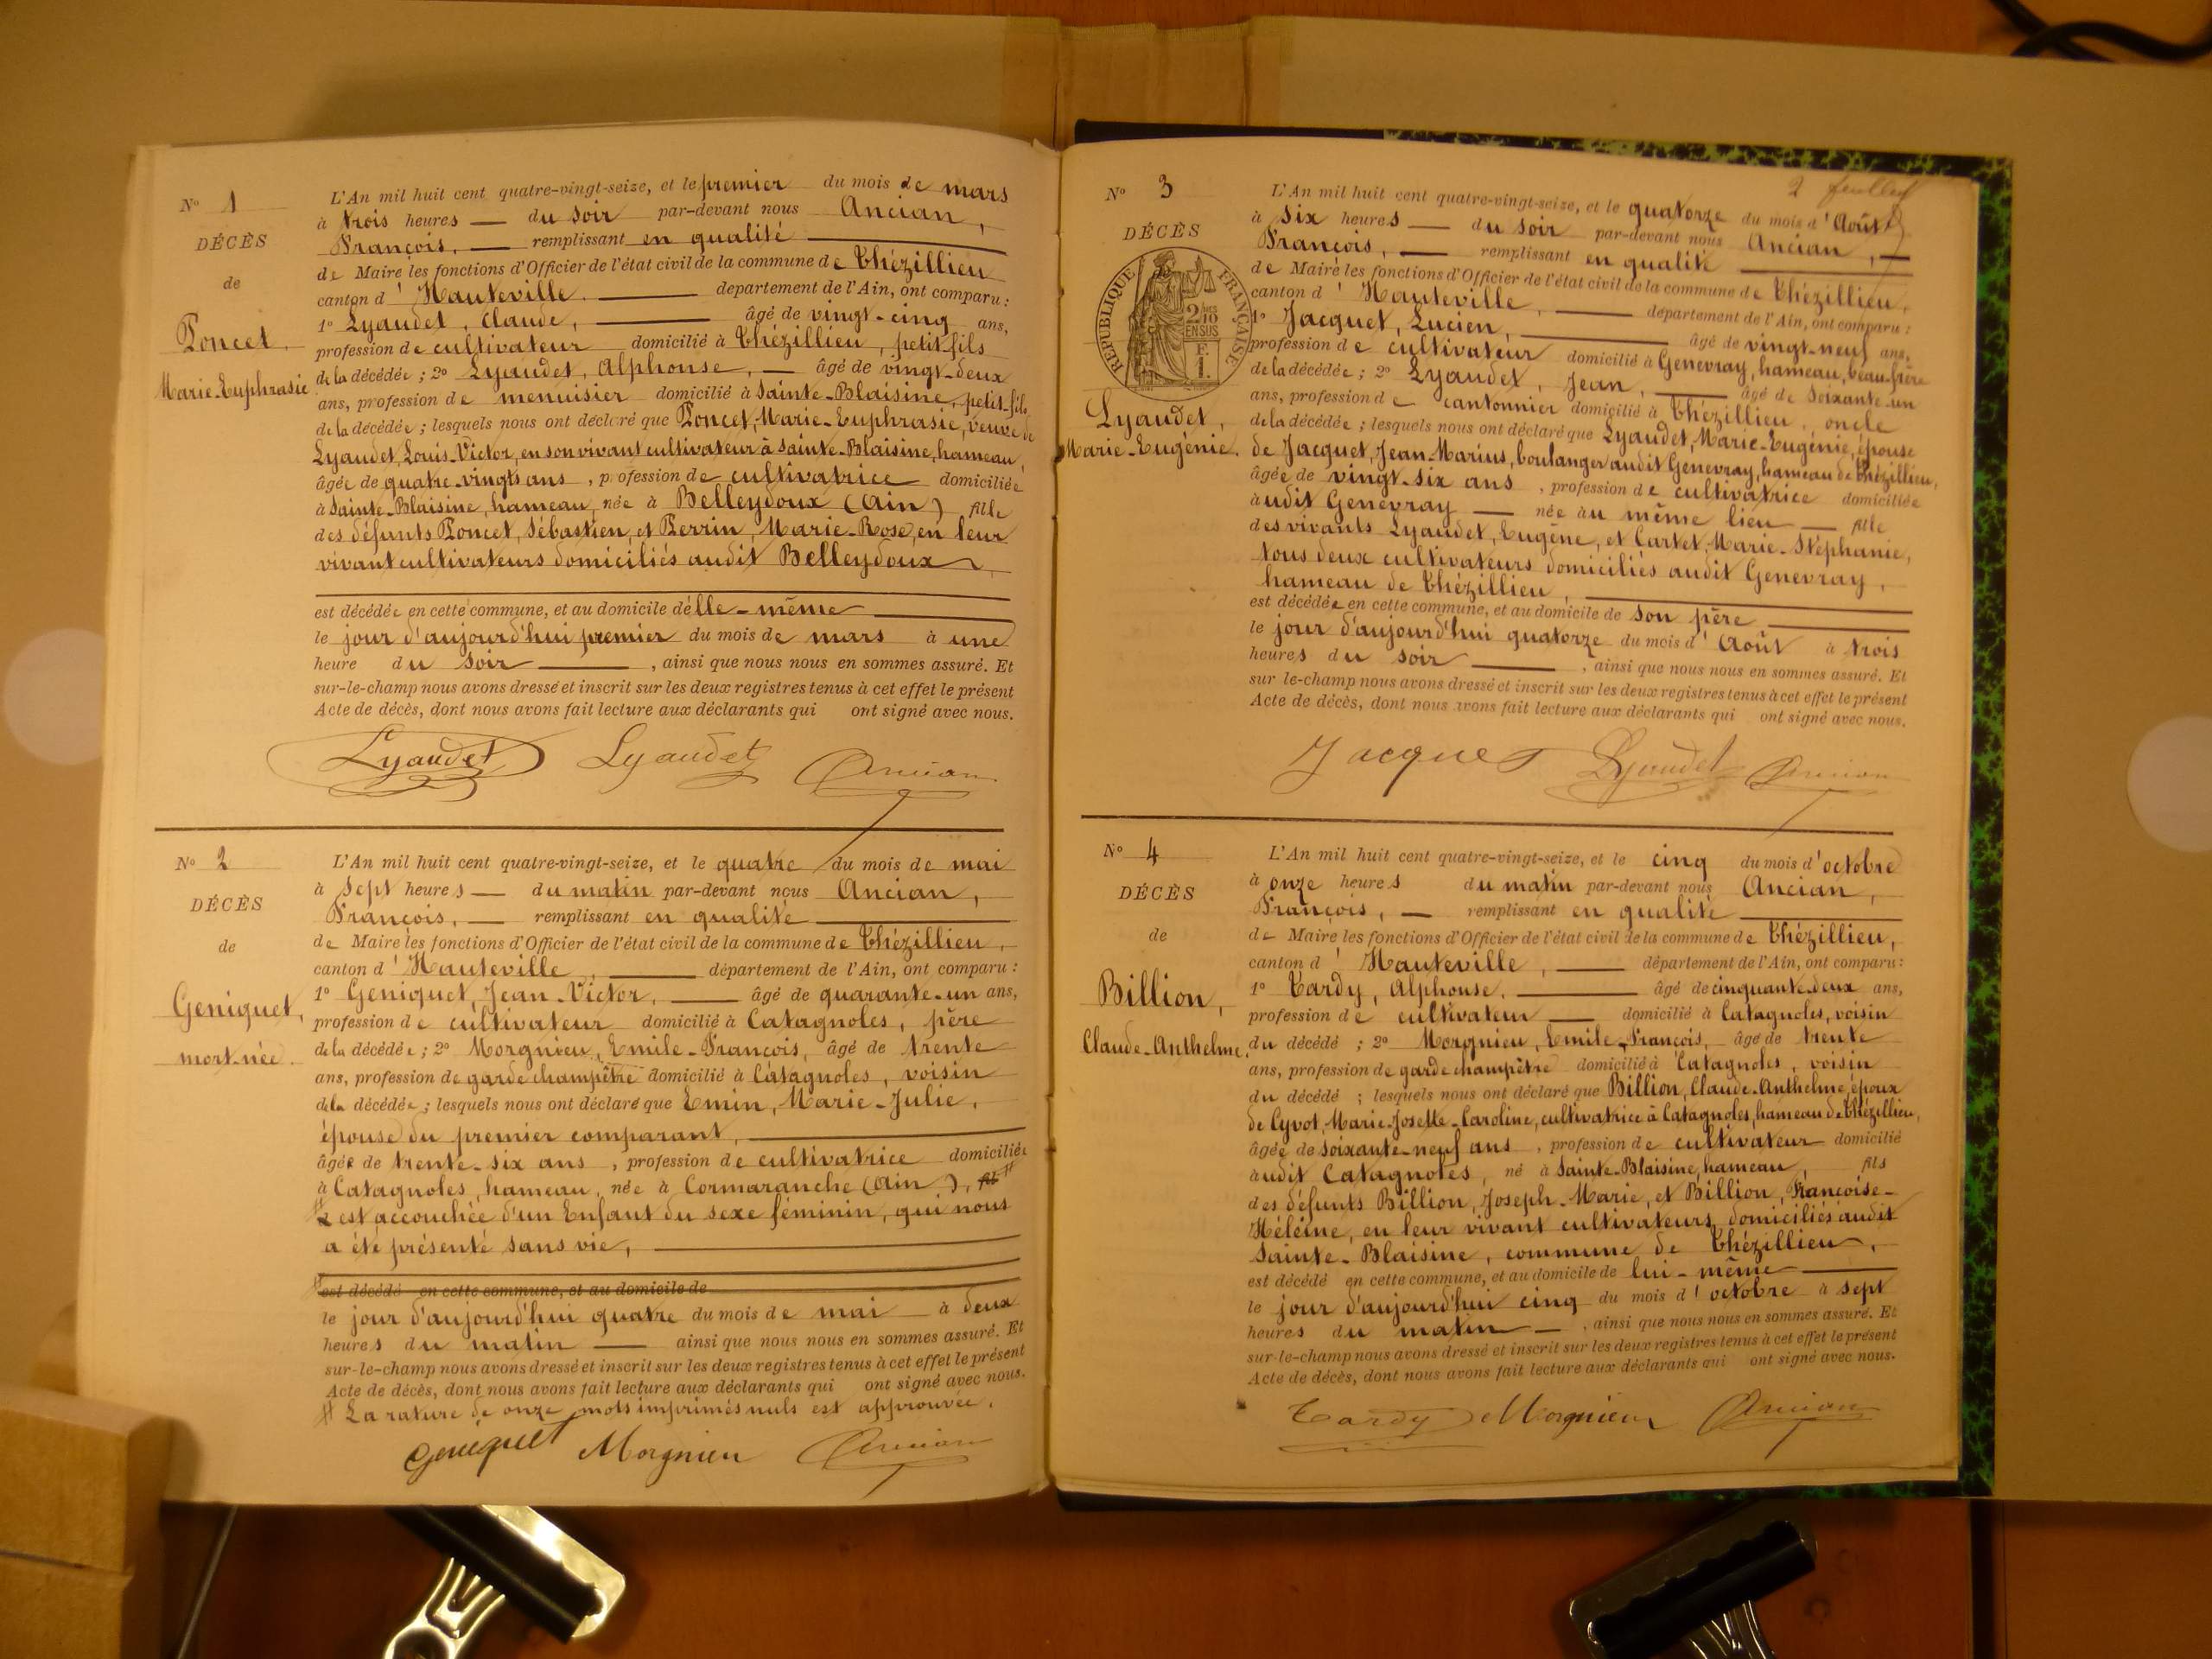 N° 1
DÉCÈS
de
Poncet,
Marie-Euphrasie
L'An mil huit cent quatre-vingt-seize, et le premier du mois de mars
à trois heures du soir par-devant nous Ancian,
François, remplissant en qualité
de Maire les fonctions d'Officier de l'état civil de la commune de Thézillieu
canton d'Hauteville. département de l'Ain, ont comparu :
1° Lyaudet, Claude, âgé de vingt-cinq ans,
profession de cultivateur domicilié à Thézillieu, petit-fils
de la décédée ; 2° Lyaudet, Alphonse, âgé de vingt-deux
ans, profession de menuisier domicilié à Sainte-Blaisine, petit-fils
de la décédée ; lesquels nous ont déclaré que Poncet, Marie-Euphrasie, veuve de
Lyaudet, Louis-Victor, en son vivant cultivateur à Sainte-Blaisine, hameau,
âgée de quatre-vingts ans, profession de cultivatrice domiciliée
à Sainte-Blaisine, hameau, née à Belleydoux (Ain) fille
des défunts Poncet, Sébastien, et Perrin, Marie-Rose, en leur
vivant cultivateurs domiciliés audit Belleydoux
est décédée en cette commune, et au domicile d'elle-même
le jour d'aujourd'hui premier du mois de mars à une
heure du soir, ainsi que nous nous en sommes assuré. Et
sur-le-champ nous avons dressé et inscrit sur les deux registres tenus à cet effet le présent
Acte de décès, dont nous avons fait lecture aux déclarants qui ont signé avec nous.
Lyaudet Lyaudet Ancian
N° 2
DÉCÈS
de
Geniquet,
mort-née.
L'An mil huit cent quatre-vingt-seize, et le quatre du mois de mai
à sept heures du matin par-devant nous Ancian,
François, remplissant en qualité
de Maire les fonctions d'Officier de l'état civil de la commune de Thézillieu,
canton d'Hauteville, département de l'Ain, ont comparu :
1° Geniquet, Jean-Victor, âgé de quarante-un ans,
profession de cultivateur domicilié à Catagnoles, père
de la décédée ; 2° Morgnieu, Emile-François, âgé de trente
ans, profession de garde champêtre domicilié à Catagnoles, voisin
de la décédée ; lesquels nous ont déclaré que Emin, Marie-Julie,
épouse du premier comparant,
âgée de trente-six ans, profession de cultivatrice domiciliée
à Catagnoles, hameau, née à Cormaranche (Ain), fil #
# est accouchée d'un Enfant du sexe féminin, qui nous
a été présenté sans vie,
# est décédé en cette commune, et au domicile de
le jour d'aujourd'hui quatre du mois de mai à deux
heures du matin ainsi que nous nous en sommes assuré. Et
sur-le-champ nous avons dressé et inscrit sur les deux registres tenus à cet effet le présent
Acte de décès, dont nous avons fait lecture aux déclarants qui ont signé avec nous.
# La rature de onze mots imprimés nuls est approuvée.
Geniquet Morgnieu Ancian
2 feuillet
N° 3
DÉCÈS
RÉPUBLIQUE FRANÇAISE
2/10 EN SUS
F.
1.
Lyaudet,
Marie-Eugénie.
L'An mil huit cent quatre-vingt-seize, et le quatorze du mois d'Août
à six heures du soir par-devant nous Ancian,
François, remplissant en qualité
de Maire les fonctions d'Officier de l'état civil de la commune de Thézillieu,
canton d'Hauteville, département de l'Ain, ont comparu :
1° Jacquet, Lucien, âgé de vingt-neuf ans,
profession de cultivateur domicilié à Genevray, hameau, beau-frère
de la décédée ; 2° Lyaudet, Jean, âgé de soixante-un
ans, profession de cantonnier domicilié à Thézillieu, oncle
de la décédée ; lesquels nous ont déclaré que Lyaudet, Marie-Eugénie, épouse
de Jacquet, Jean-Marius, boulanger audit Genevray, hameau de Thézillieu,
âgée de vingt-six ans, profession de cultivatrice domiciliée
audit Genevray née au même lieu fille
des vivants Lyaudet, Eugène, et Cartet, Marie-Stéphanie,
tous deux cultivateurs domiciliés audit Genevray,
hameau de Thézillieu,
est décédée en cette commune, et au domicile de son père
le jour d'aujourd'hui quatorze du mois d'Août à trois
heures du soir, ainsi que nous nous en sommes assuré. Et
sur-le-champ nous avons dressé et inscrit sur les deux registres tenus à cet effet le présent
Acte de décès, dont nous avons fait lecture aux déclarants qui ont signé avec nous.
Jacquet Lyaudet Ancian
N° 4
DÉCÈS
de
Billion,
Claude-Anthelme.
L'An mil huit cent quatre-vingt-seize, et le cinq du mois d'octobre
à onze heures du matin par-devant nous Ancian,
François, remplissant en qualité
de Maire les fonctions d'Officier de l'état civil de la commune de Thézillieu,
canton d'Hauteville, département de l'Ain, ont comparu :
1° Tardy, Alphonse, âgé de cinquante-deux ans,
profession de cultivateur domicilié à Catagnoles, voisin
du décédé ; 2° Morgnieu, Emile-François, âgé de trente
ans, profession de garde champêtre domicilié à Catagnoles, voisin
du décédé ; lesquels nous ont déclaré que Billion, Claude-Anthelme, époux
de Cyvot, Marie-Josette-Caroline, cultivatrice à Catagnoles, hameau de Thézillieu,
âgé de soixante-neuf ans, profession de cultivateur domicilié
audit Catagnoles, né à Sainte-Blaisine, hameau, fils
des défunts Billion, Joseph-Marie, et Billion, Françoise-
Héléine, en leur vivant cultivateurs domiciliés audit
Sainte-Blaisine, commune de Thézillieu,
est décédé en cette commune, et au domicile de lui-même
le jour d'aujourd'hui cinq du mois d'octobre à sept
heures du matin, ainsi que nous nous en sommes assuré. Et
sur-le-champ nous avons dressé et inscrit sur les deux registres tenus à cet effet le présent
Acte de décès, dont nous avons fait lecture aux déclarants qui ont signé avec nous.
Tardy Morgnieu Ancian